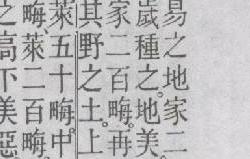 易之地家二
歲種之。地美
家二百畮。再
其野之土上
萊五十畮。中
畮。萊二百畮。
之高下美惡